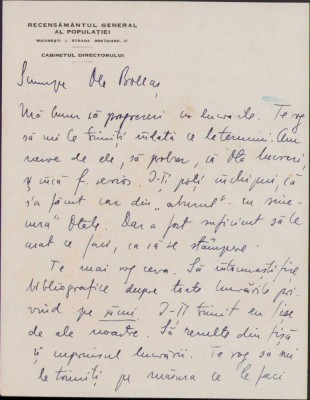 RECENSĂMÂNTUL GENERAL
AL POPULAȚIEI
BUCUREȘTI I, STRADA
CABINETUL DIRECTORULUI
Scumpe
Mă bucur să progresezi cu lucrarile. Te rog
să mi le trimiți îndată ce le termini. Am
nevoe de ele, să probez, că lucrezi,
și încă f. serios. Ț-ți poți închipui, că
s'a făcut caz din "absența" ta
Dar a fost suficient să le
arat ce faci, ca să se stâmpere.
Te mai rog ceva. Să întocmești fișe
bibliografice despre toate lucrările pri-
vind pe Ț-ți trimit eu fișe
de ale noastre. Să rezulte din fișă
și cuprinsul lucrării. Te rog să mi
le trimiți pe măsura ce le faci